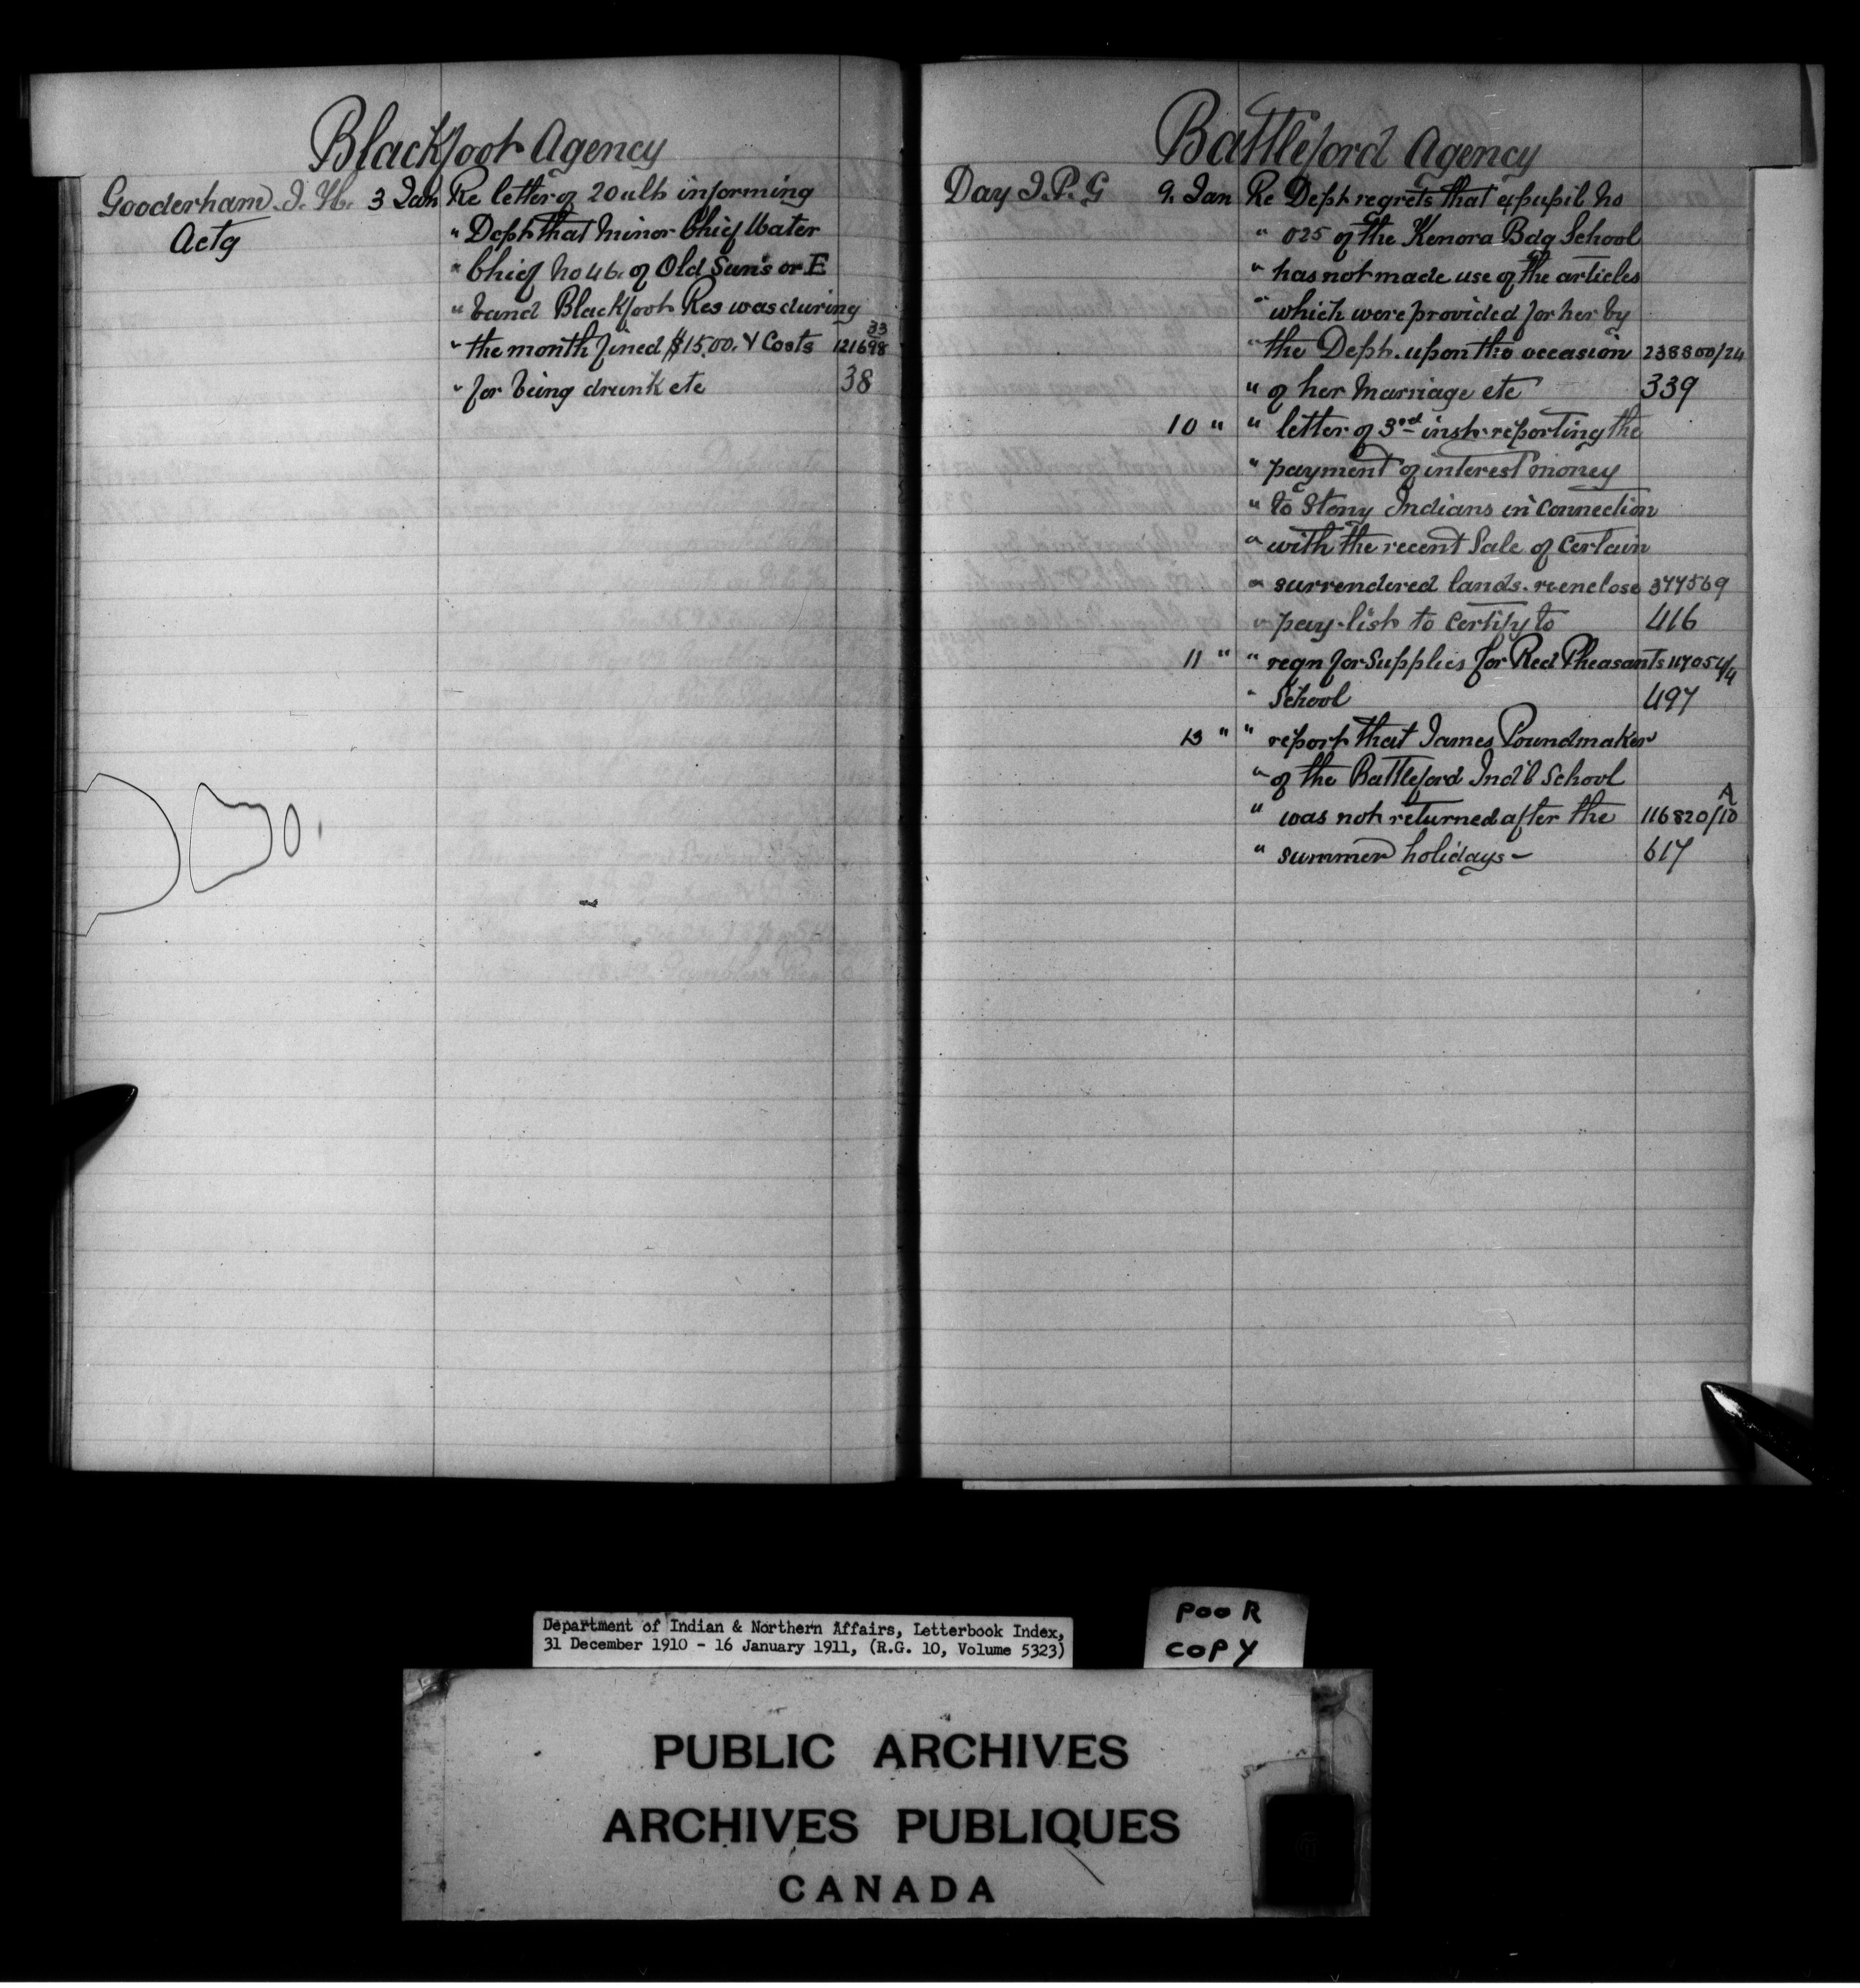 Blackfoot Agency
Gooderham J. H. 3 Jan Re letter of 20 ult informing
Actg " Dept that Minor Chief Water
" Chief No 46. of Old Sun's or E
" band Blackfoot Res was during
" the month fined $15.00. & Costs 121698 33
" for being drunk etc 38
Battleford Agency
Day J. P. G 9. Jan Re Dept regrets that expupil No
" 025 of the Kenora Bdg School
" has not made use of the articles
" which were provided for her by
" the Dept. upon the occasion 238800/24
" of her Marriage etc 339
10 " " letter of 3rd inst. reporting the
" payment of interest money
" to Stony Indians in Connection
" with the recent Sale of Certain
" surrendered lands. re enclose 377569
" pay-list to Certify to 416
11 " " reqn for Supplies for Red Pheasants 117054/4
" School 497
13 " " report that James Poundmaker
" of the Battleford Ind'l School
" was not returned after the 116820/10 A
" summer holidays - 617
Department of Indian & Northern Affairs, Letterbook Index,
31 December 1910 - 16 January 1911, (R.G. 10, Volume 5323)
POOR
COPY
PUBLIC ARCHIVES
ARCHIVES PUBLIQUES
CANADA